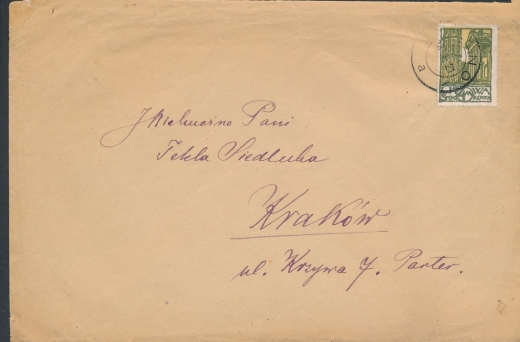 Pani
Tekla Siedlecka
Kraków
ul. Krzywa 7. Parter.